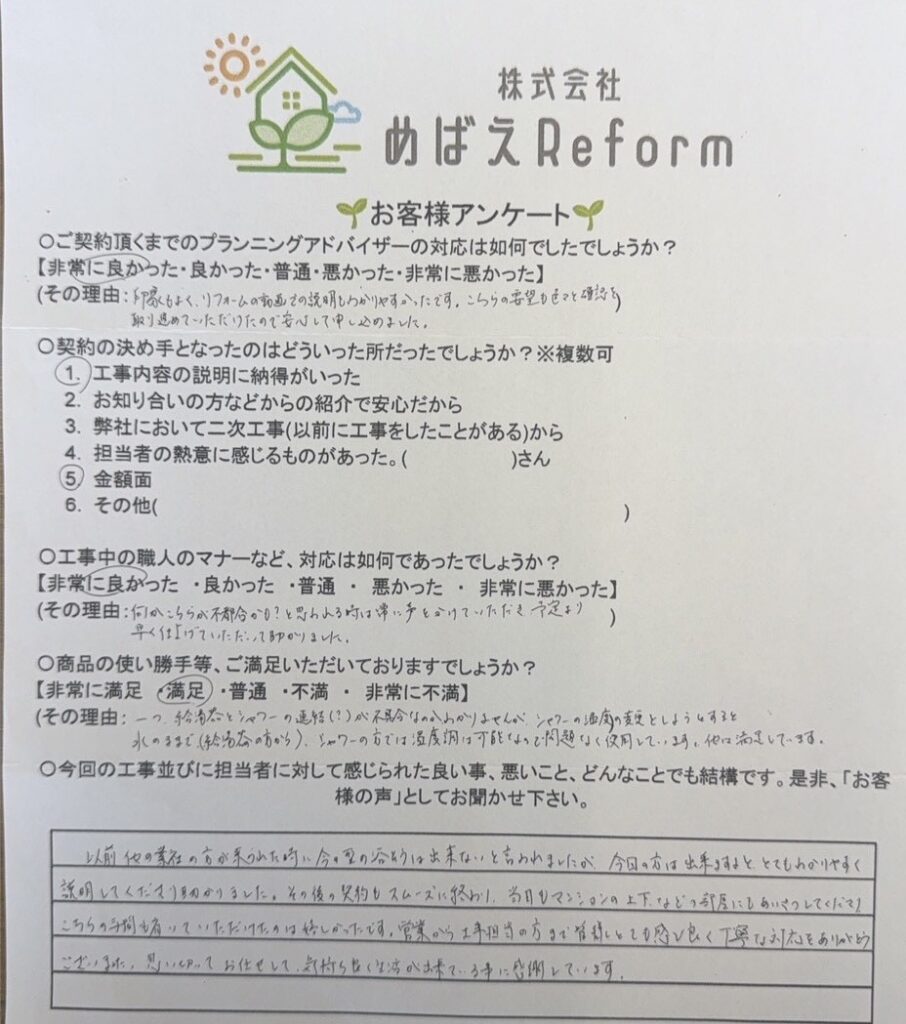 株式会社
めばえReform
お客様アンケート
○ご契約頂くまでのプランニングアドバイザーの対応は如何でしたでしょうか？
【非常に良かった・良かった・普通・悪かった・非常に悪かった】
(その理由：印象もよく、リフォームの動画での説明もわかりやすかったです。こちらの要望も色々と確認を)
取り進めていただけたので安心して申し込めました。
○契約の決め手となったのはどういった所だったでしょうか？※複数可
1. 工事内容の説明に納得がいった
2. お知り合いの方などからの紹介で安心だから
3. 弊社において二次工事(以前に工事をしたことがある)から
4. 担当者の熱意に感じるものがあった。( )さん
5. 金額面
6. その他( )
○工事中の職人のマナーなど、対応は如何であったでしょうか？
【非常に良かった ・良かった ・普通 ・ 悪かった ・ 非常に悪かった】
(その理由：何かこちらが不都合かも？と思われる時は常に声をかけていただき 予定より)
早く仕上げていただいて助かりました。
○商品の使い勝手等、ご満足いただいておりますでしょうか？
【非常に満足 ・満足 ・普通 ・不満 ・ 非常に不満】
(その理由：一つ、給湯器とシャワーの連結(？)が不具合なのかわかりませんが、シャワーの温度の変更をしようとすると
水のままで(給湯器の方から)、シャワーの方では温度調は可能なので問題なく使用しています。他は満足しています。
○今回の工事並びに担当者に対して感じられた良い事、悪いこと、どんなことでも結構です。是非、「お客
様の声」としてお聞かせ下さい。
以前 他の業社の方が来られた時に今の型の浴そうは出来ないと言われましたが、今回の方は出来ますよと、とてもわかりやすく
説明してくださり助かりました。その後の契約もスムーズに終わり、当日もマンションの上下などの部屋にもあいさつしてくださり
こちらの手間も省いていただけたのは嬉しかったです。営業から工事担当の方まで皆様とても感じ良く丁寧な対応をありがとう
ございました。思い切ってお任せして、気持ち良く生活が出来ている事に感謝しています。